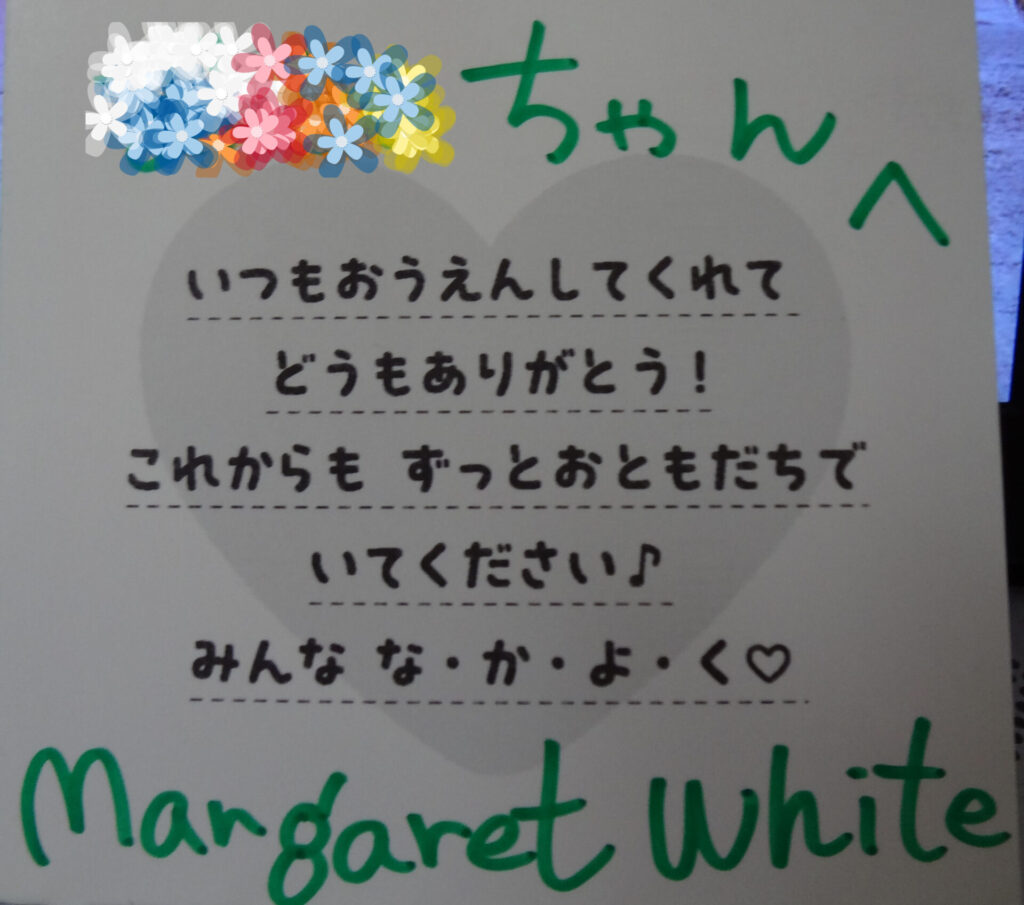 ちゃんへ
いつもおうえんしてくれて
どうもありがとう！
これからも ずっとおともだちで
いてください♪
みんな な・か・よ・く♡
Margaret White